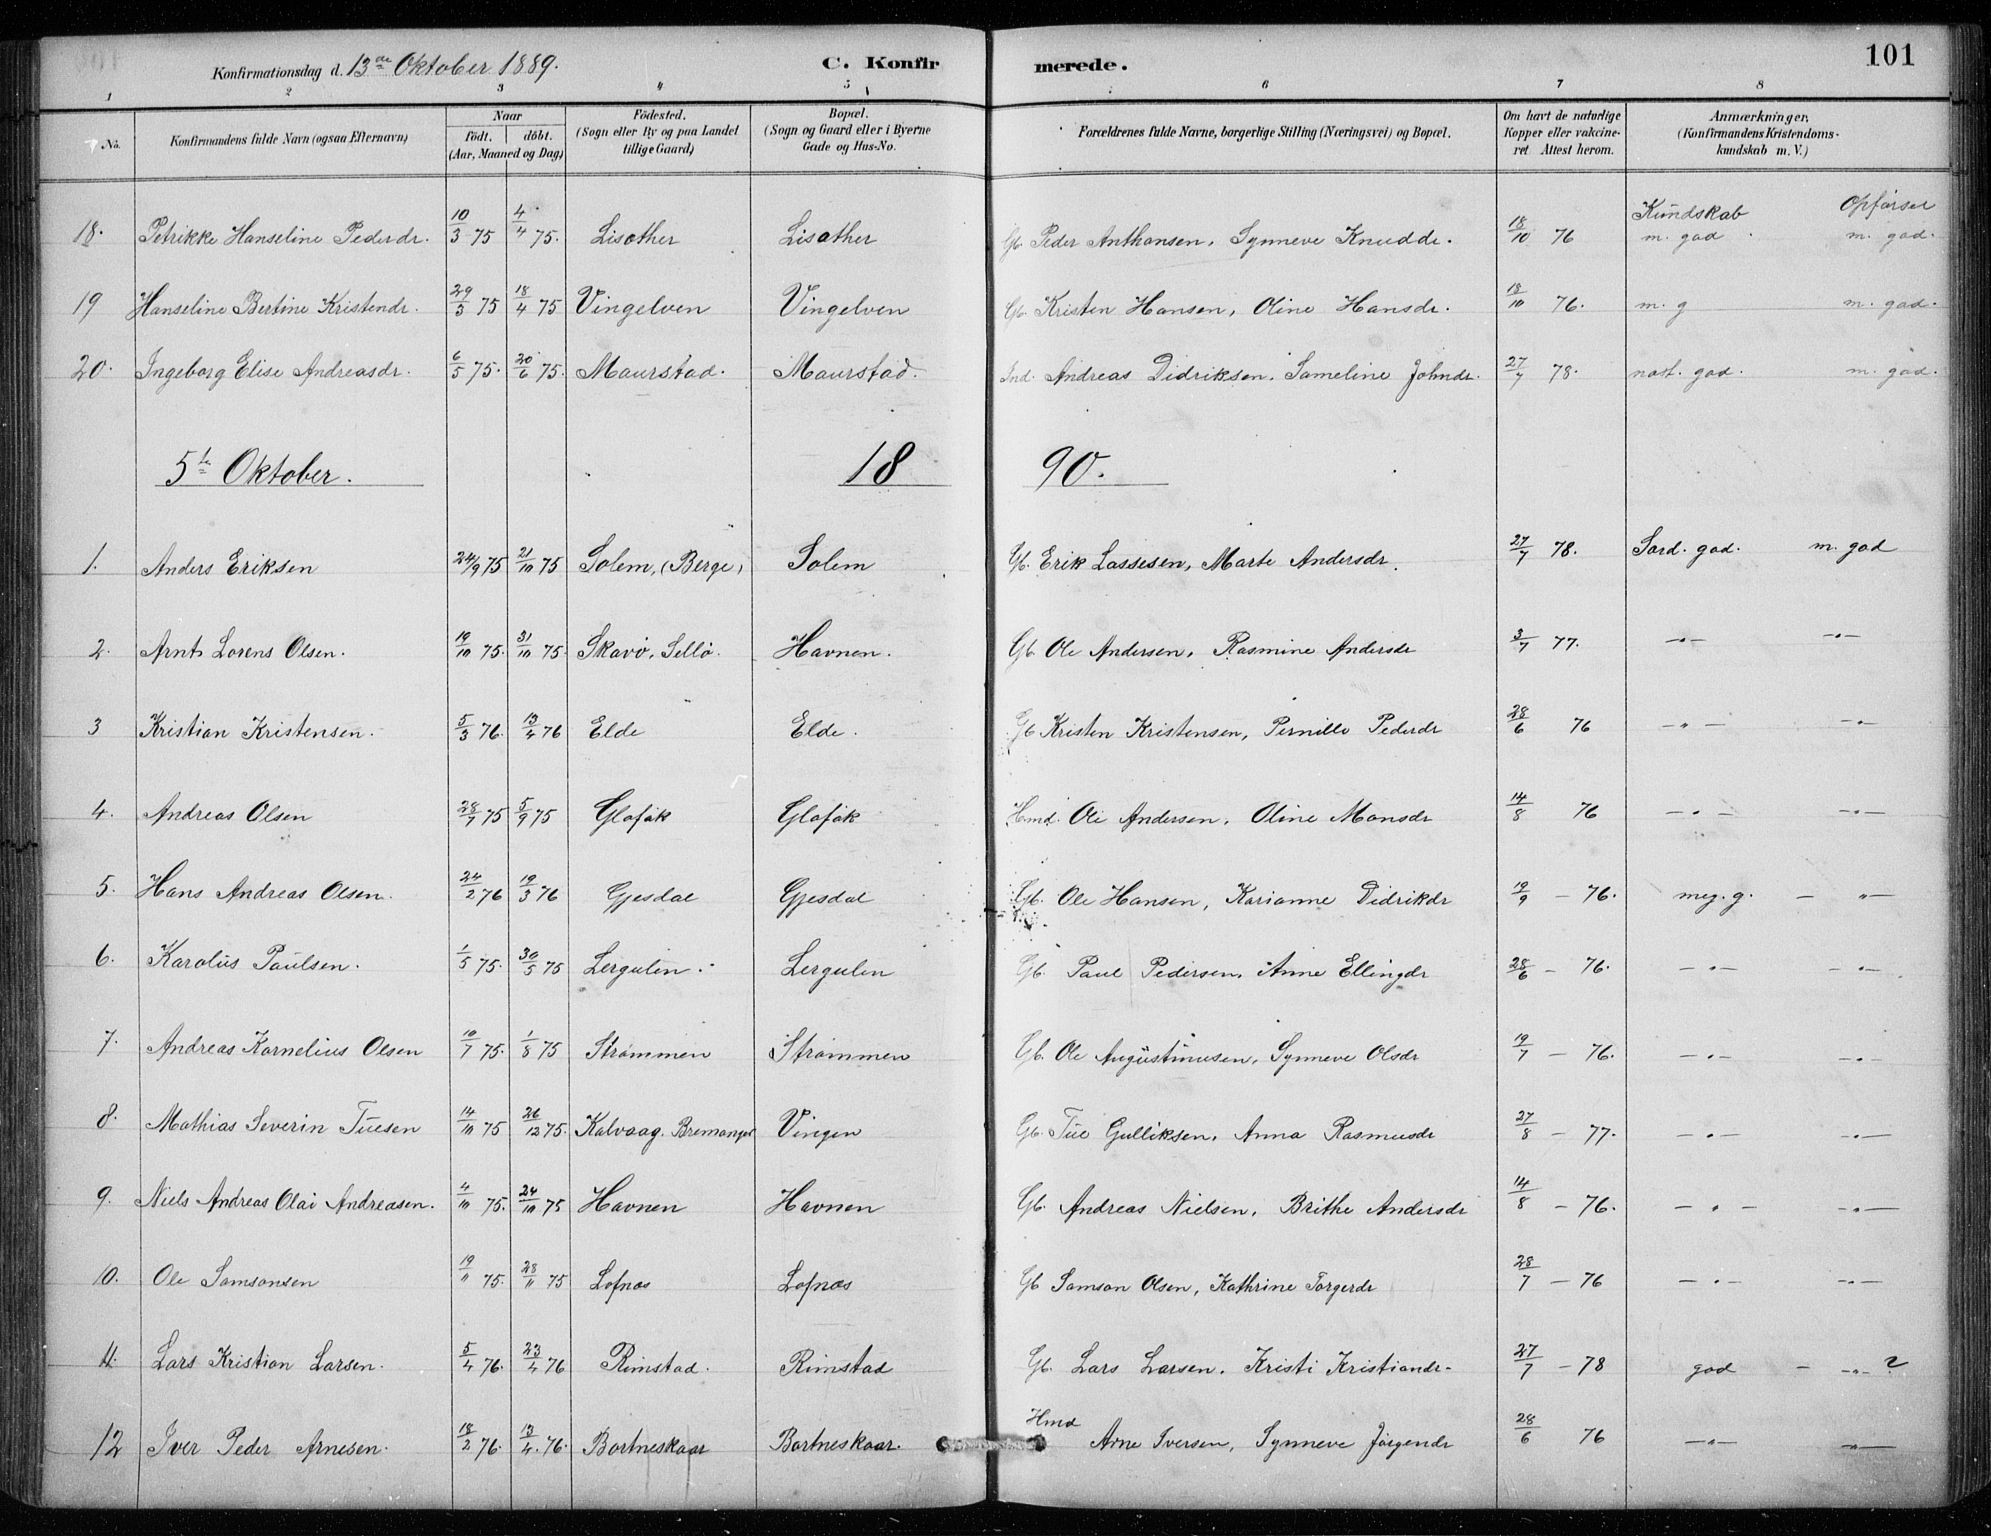 Konfirmationsdag d. 13de Oktober 1889. C. Konfirmerede. 101
1 2 3 4 5 6 7 8
No. Konfirmandens fulde Navn (ogsaa Efternavn) Naar födt. döbt. (Aar, Maaned og Dag) Födested. (Sogn eller By og paa Landet tillige Gaard) Bopæl. (Sogn og Gaard eller i Byerne Gade og Hus-No. Forældrenes fulde Navne, borgerlige Stilling (Næringsvei) og Bopæl. Om havt de naturlige Kopper eller vakcineret Attest herom. Anmærkninger. (Konfirmandens Kristendomskundskab m. V.)
Kundskab Opførsel
18. Petrikke Hanseline Pederdr. 10/3 75 4/4 75. Lisæther Lisæther Gb. Peder Anthonsen, Synneve Knuddr. 18/10 76 m. god m. god.
19 Hanseline Bertine Kristendr. 29/3 75 18/4 75 Vingelven Vingelven Gb. Kristen Hansen, Oline Hansdr. 18/10 76. m. g m. god.
20. Ingeborg Elise Andreasdr. 6/5 75. 20/6 75. Maurstad. Maurstad. Ind. Andreas Didriksen, Sameline Johndr. 27/7 78. nost. god. m. god.
5te Oktober. 18 90.
1. Anders Eriksen 24/9 75 21/10 75 Solem, (Berge) Solem Gb. Erik Lassesen, Marte Andersdr. 27/7 78. Særd. god. m. god
2. Arnt Lorens Olsen. 19/10 75. 31/10 75. Skavø, Sellø. Havnen. Gb. Ole Andersen, Rasmine Andersdr 3/7 77. -"- -"-
3 Kristian Kristensen. 5/3 76. 13/4 76 Elde Elde. Gb Kristen Kristensen, Pernille Pederdr 28/6 76 -"- -"-
4. Andreas Olsen 28/7 75 5/9 75 Glofok Glofok Hmd. Ole Andersen, Oline Monsdr 14/8 76 -"- -"-
5. Hans Andreas Olsen. 24/2 76 19/3 76 Gjesdal Gjesdal Gb. Ole Hansen, Karianne Didrikdr 19/9 - 76. meg. g. - "-
6. Karolus Paulsen. 1/5 75. 30/5 75 Lergulen. Lergulen Gb. Paul Pedersen, Anne Ellingdr 28/6 - 76. -"- -"-
7. Andreas Kornelius Olsen 10/7 75. 1/8 75 Strømmen Strømmen Gb. Ole Augustinusen, Synneve Olsdr 19/7 - 76. -"- -"-
8. Mathias Severin Tuesen 14/10 75 26/12 75. Kalvaag. Bremanger Vingen Gb. Tue Gulliksen, Anna Rasmusdr 27/8 - 77. -"- -"-
9. Niels Andreas Olai Andreasen. 4/10 75. 24/10 75 Havnen Havnen Gb. Andreas Nielsen, Brithe Andersdr 14/8 - 76. -"- -"-
10. Ole Samsonsen 19/11 75. 28/11 75 Lofnæs Lofnæs Gb Samson Olsen, Kathrine Torgerdr 28/7 - 76 -"- -"-
11. Lars Kristian Larsen. 5/4 76. 23/4 76 Rimstad. Rimstad Gb. Lars Larsen, Kristi Kristiandr. 27/7 - 78 god - -"- ?
12 Iver Peder Arnesen. 18/2 76. 13/4 76. Bortneskaar Bortneskaar. Hmd Arne Iversen, Synneve Jørgendr 28/6 76 -"- -"-